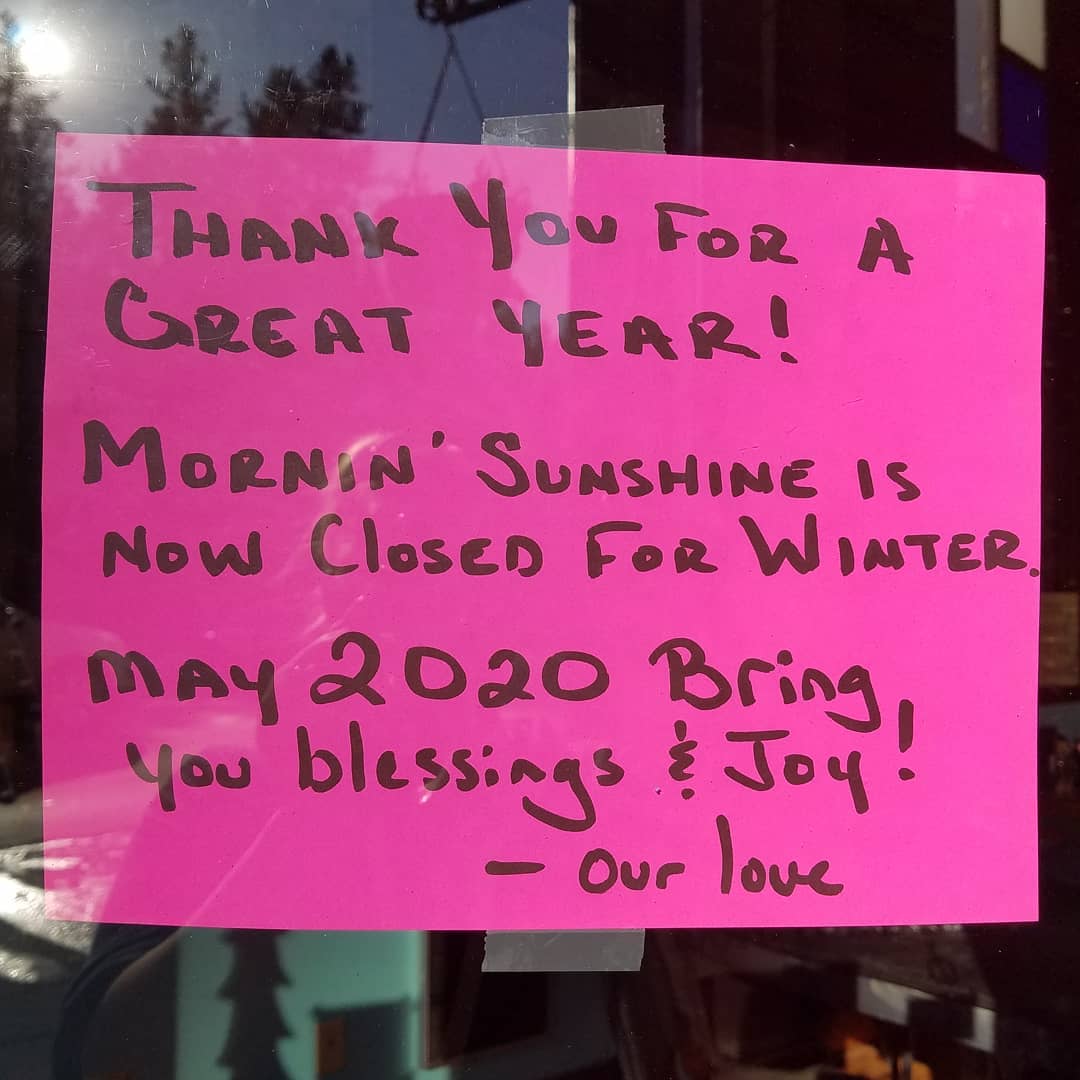 THANK YOU FOR A
GREAT YEAR!
MORNIN' SUNSHINE IS
NOW ClOSED FOR WINTER.
MAY 2020 Bring
you blessings & Joy!
- our love